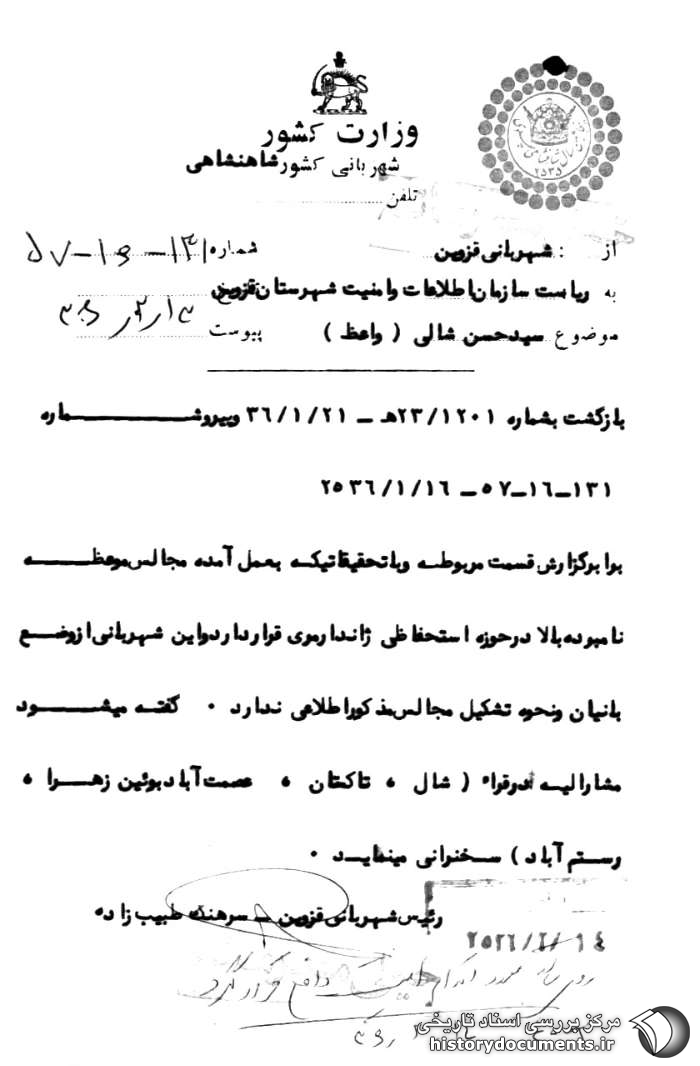 وزارت کشور
شهربانی کشور شاهنشاهی
تلفن
۲۵۳۵
از : شهربانی قزوین
شماره ۱۳۱-۱۶-۵۷
به ریاست سازمان اطلاعات و امنیت شهرستان قزوین
موضوع سیدحسن شالی ( واعظ )
پیوست
بازگشت بشماره ۲۳/۱۲۰۱ه‍ – ۳۶/۱/۲۱ وپیروشماره
۱۳۱-۱۶-۵۷ – ۲۵۳۶/۱/۱۶
برابرگزارش قسمت مربوطه وباتحقیقاتیکه بعمل آمده مجالس موعظه
نامبرده بالا درحوزه استحفاظی ژاندارمری قرارداردواین شهربانی ازوضع
بانیان ونحوه تشکیل مجالس مذکوراطلاعی ندارد ۰ گفته میشود
مشارالیه درقراء ( شال ، تاکستان ، عصمت آباد بوئین زهرا ،
رستم آباد ) سخنرانی مینماید ۰
رئیس شهربانی قزوین – سرهنگ طبیب زاده
مرکز بررسی اسناد تاریخی
historydocuments.ir